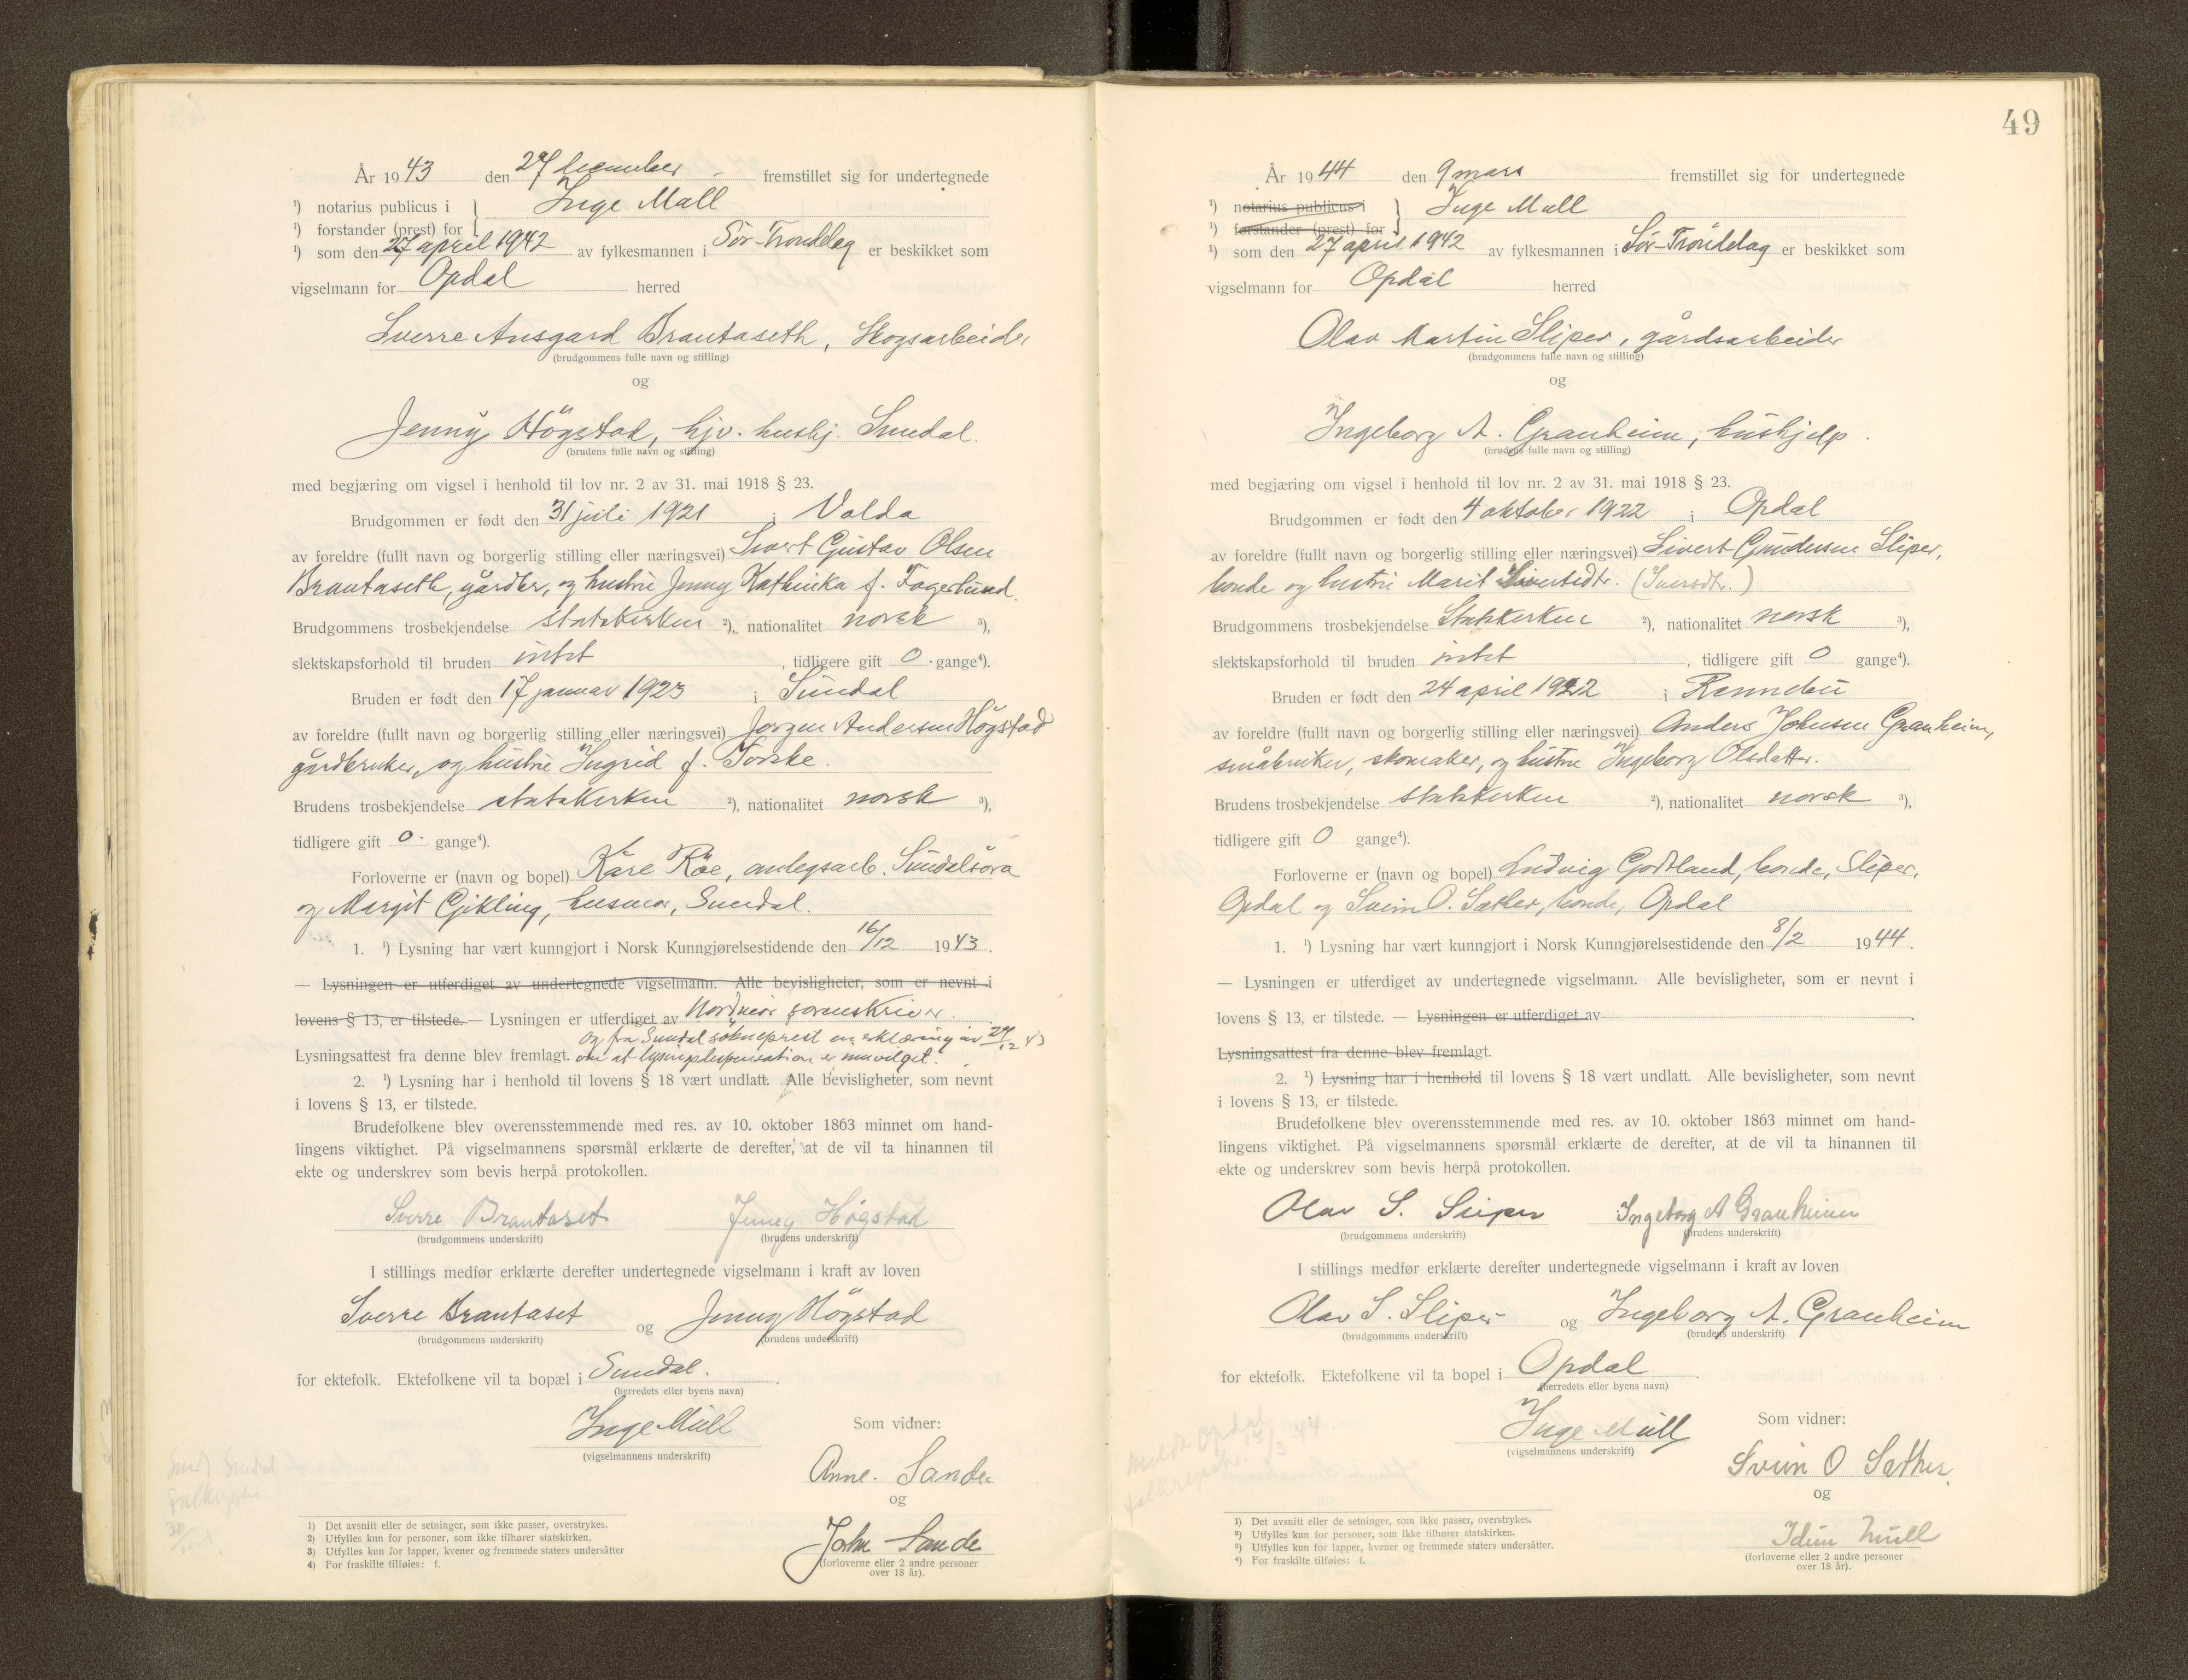 År 1943 den 27 december fremstillet sig for undertegnede
¹) notarius publicus i } Inge Mull
¹) forstander (prest) for
¹) som den 27 april 1942 av fylkesmannen i Sör-Tröndelag er beskikket som
vigselmann for Opdal herred
Sverre Ansgard Brautaseth, Skogsarbeider
(brudgommens fulle navn og stilling)
og
Jenny Högstad, hjv. hushj. Sundal.
(brudens fulle navn og stilling)
med begjæring om vigsel i henhold til lov nr. 2 av 31. mai 1918 § 23.
Brudgommen er født den 31 juli 1921 i Volda
av foreldre (fullt navn og borgerlig stilling eller næringsvei) Sivert Gustav Olsen
Brautaseth, gårdbr, og hustru Jenny Kathinka f. Fagerlund.
Brudgommens trosbekjendelse statskirken ²), nationalitet norsk ³),
slektskapsforhold til bruden intet, tidligere gift 0 gange⁴).
Bruden er født den 17 januar 1923 i Sundal
av foreldre (fullt navn og borgerlig stilling eller næringsvei) Jörgen Andersen Högstad
gårdbruker, og hustru Ingrid f. Torske.
Brudens trosbekjendelse statskirken ²), nationalitet norsk ³),
tidligere gift 0 gange⁴).
Forloverne er (navn og bopel) Kåre Röe, anlegsarb. Sundalsöra
og Margit Gjikling, husmor, Sundal.
1. ¹) Lysning har vært kunngjort i Norsk Kunngjørelsestidende den 16/12 1943.
— Lysningen er utferdiget av undertegnede vigselmann. Alle bevisligheter, som er nevnt i
lovens § 13, er tilstede. — Lysningen er utferdiget av Nordmör sorenskriver.
og fra Sundal sokneprest en erklæring av 27/12 43
Lysningsattest fra denne blev fremlagt. om at lysningsdispensation er innvilget.
2. ¹) Lysning har i henhold til lovens § 18 vært undlatt. Alle bevisligheter, som nevnt
i lovens § 13, er tilstede.
Brudefolkene blev overensstemmende med res. av 10. oktober 1863 minnet om hand-
lingens viktighet. På vigselmannens spørsmål erklærte de derefter, at de vil ta hinannen til
ekte og underskrev som bevis herpå protokollen.
Sverre Brautaset Jenny Högstad
(brudgommens underskrift) (brudens underskrift)
I stillings medfør erklærte derefter undertegnede vigselmann i kraft av loven
Sverre Brautaset og Jenny Högstad
(brudgommens underskrift) (brudens underskrift)
for ektefolk. Ektefolkene vil ta bopæl i Sundal.
(herredets eller byens navn)
Inge Mull Som vidner:
(vigselmannens underskrift)
Anne Sande
og
John Sande
(forloverne eller 2 andre personer
over 18 år).
Sendt Sundal
Folkeregister
1) Det avsnitt eller de setninger, som ikke passer, overstrykes.
2) Utfylles kun for personer, som ikke tilhører statskirken.
3) Utfylles kun for lapper, kvener og fremmede staters undersåtter
4) For fraskilte tilføies: f.
49
År 1944 den 9 mars fremstillet sig for undertegnede
¹) notarius publicus i } Inge Mull
¹) forstander (prest) for
¹) som den 27 april 1942 av fylkesmannen i Sör-Tröndelag er beskikket som
vigselmann for Opdal herred
Olav Martin Sliper, gårdsarbeider
(brudgommens fulle navn og stilling)
og
Ingeborg A. Granheim, hushjelp.
(brudens fulle navn og stilling)
med begjæring om vigsel i henhold til lov nr. 2 av 31. mai 1918 § 23.
Brudgommen er født den 4 oktober 1922 i Opdal
av foreldre (fullt navn og borgerlig stilling eller næringsvei) Sivert Gundersen Sliper,
bonde og hustru Marit Sivertsdtr. (Iversdtr.)
Brudgommens trosbekjendelse Statskirken ²), nationalitet norsk ³),
slektskapsforhold til bruden intet, tidligere gift 0 gange⁴).
Bruden er født den 24 april 1922 i Rennebu
av foreldre (fullt navn og borgerlig stilling eller næringsvei) Anders Johnsen Granheim,
småbruker, skomaker, og hustru Ingeborg Olsdatter.
Brudens trosbekjendelse statskirken ²), nationalitet norsk ³),
tidligere gift 0 gange⁴).
Forloverne er (navn og bopel) Ludvig Godtland, bonde, Sliper,
Opdal og Svein O. Sæther, bonde, Opdal
1. ¹) Lysning har vært kunngjort i Norsk Kunngjørelsestidende den 8/2 1944.
— Lysningen er utferdiget av undertegnede vigselmann. Alle bevisligheter, som er nevnt i
lovens § 13, er tilstede. — Lysningen er utferdiget av .
Lysningsattest fra denne blev fremlagt.
2. ¹) Lysning har i henhold til lovens § 18 vært undlatt. Alle bevisligheter, som nevnt
i lovens § 13, er tilstede.
Brudefolkene blev overensstemmende med res. av 10. oktober 1863 minnet om hand-
lingens viktighet. På vigselmannens spørsmål erklærte de derefter, at de vil ta hinannen til
ekte og underskrev som bevis herpå protokollen.
Olav S. Sliper Ingeborg A Granheim
(brudgommens underskrift) (brudens underskrift)
I stillings medfør erklærte derefter undertegnede vigselmann i kraft av loven
Olav S. Sliper og Ingeborg A. Granheim
(brudgommens underskrift) (brudens underskrift)
for ektefolk. Ektefolkene vil ta bopel i Opdal.
(herredets eller byens navn)
Inge Mull Som vidner:
(vigselmannens underskrift)
Svein O Sæther
og
Idun Mull
(forloverne eller 2 andre personer
over 18 år).
Meldt Opdal
folkeregister 15/3 44
1) Det avsnitt eller de setninger, som ikke passer, overstrykes.
²) Utfylles kun for personer, som ikke tilhører statskirken.
³) Utfylles kun for lapper, kvener og fremmede staters undersåtter.
⁴) For fraskilte tilføies: f.